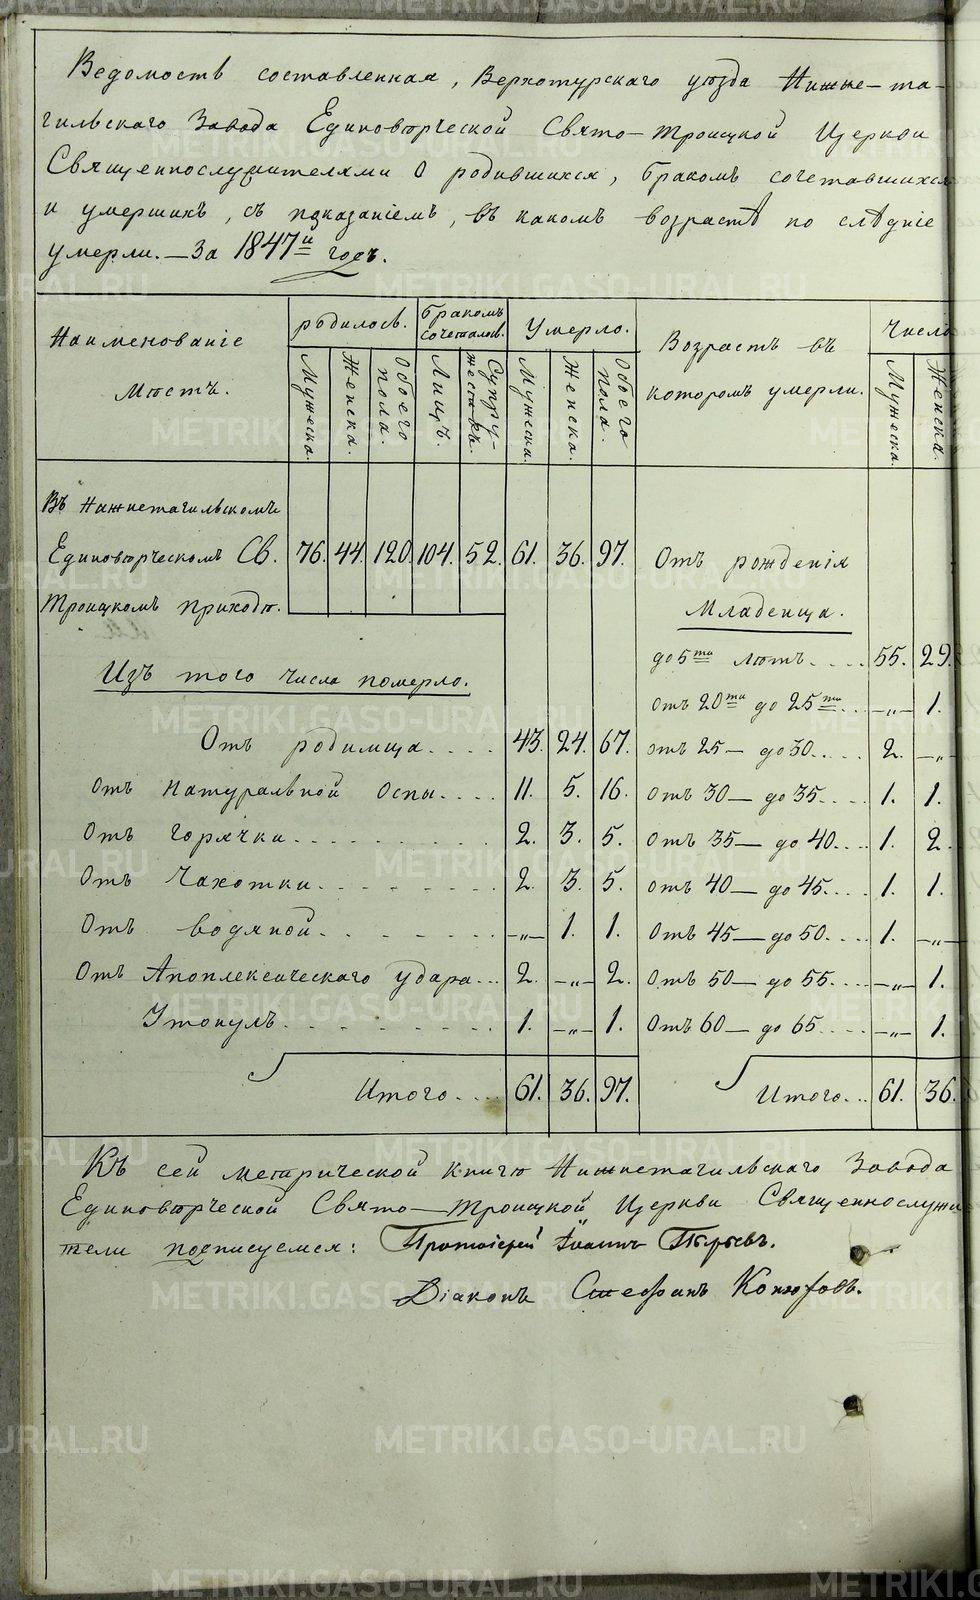 Ведомость составленная, Верхотурскаго уѣзда Нижне-та-
гильскаго Завода Единовѣрческой Свято-Троицкой Церкви
Священнослужителями о родившихся, бракомъ сочетавшихся
и умершихъ, съ показаніемъ, въ какомъ возрастѣ по слѣдніе
умерли. — За 1847й годъ.
Наименованіе Мѣстъ. родилось. Бракомъ сочеталось. Умерло. Возрастъ въ которомъ умерли. Число
Мужеска. Женска. Обоего пола. Лицъ. Супружествъ. Мужеска. Женска. Обоего пола. Мужеска. Женска.
Въ Нижнетагильскомъ
Единовѣрческомъ Св. 76. 44. 120. 104. 52. 61. 36. 97. Отъ рожденія
Троицкомъ приходѣ. Младенца.
до 5ти лѣтъ.... 55. 29.
Изъ того числа померло.
отъ 20ти до 25ти... —„— 1.
Отъ родимца.... 43. 24. 67. отъ 25 — до 30..... 2. —„—
отъ Натуральной Оспы.... 11. 5. 16. отъ 30 — до 35.... 1. 1.
Отъ Горячки.......... 2. 3. 5. отъ 35 — до 40.... 1. 2.
Отъ Чахотки......... 2. 3. 5. отъ 40 — до 45.... 1. 1.
Отъ водяной......... —„— 1. 1. Отъ 45 — до 50.... 1. —„—
Отъ Апоплексическаго удара... 2. —„— 2. Отъ 50 — до 55.... —„— 1.
Утонулъ.......... 1. —„— 1. Отъ 60 — до 65..... —„— 1.
Итого.... 61. 36. 97. Итого... 61. 36.
Къ сей метрической книгѣ Нижнетагильскаго Завода
Единовѣрческой Свято-Троицкой Церкви Священнослужи
тели подписуемся: Протоіерей Іоаннъ Пырьевъ.
Діаконъ Стефанъ Конюховъ.
METRIKI.GASO-URAL.RU